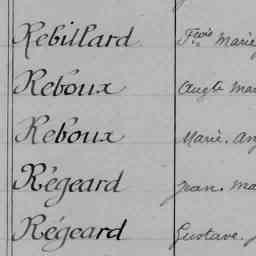 Rebillard Fçois Marie
Reboux Augte Mar
Reboux Marie. Ang
Régeard Jean. Ma
Régeard Gustave.